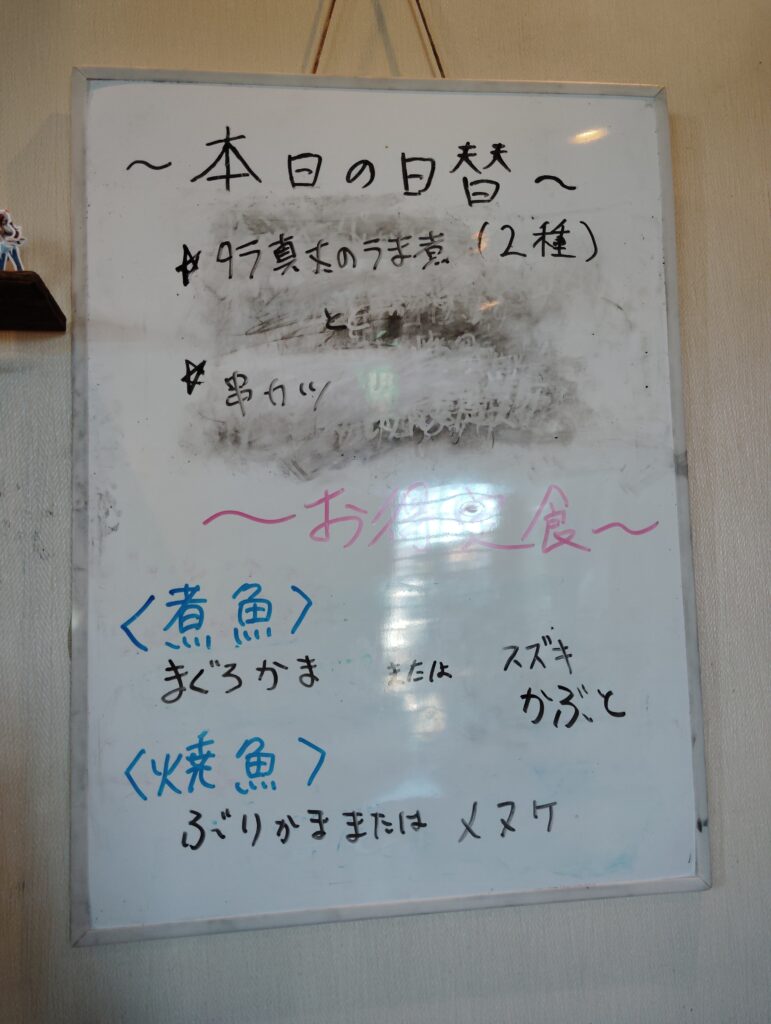 ～本日の日替～
☆タラ真丈のうま煮(2種)
と
☆串カツ
～お得定食～
〈煮魚〉
まぐろかま または スズキ
かぶと
〈焼魚〉
ぶりかままたは メヌケ